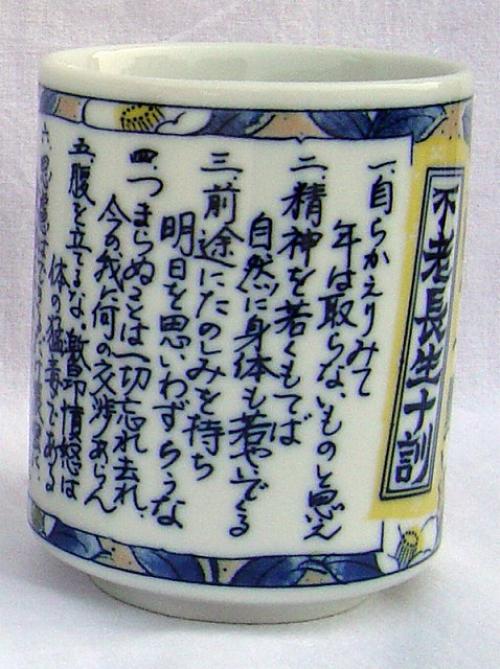 不老長生十訓
一、自らかえりみて
年は取らないものと思え
二、精神を若くもてば
自然に身体も若やいでくる
三、前途にたのしみを持ち
明日を思いわずらうな
四、つまらぬことは一切忘れ去れ、
今の我に何の交渉あらん
五、腹を立てるな、激昂憤怒は
体の猛毒である
六、